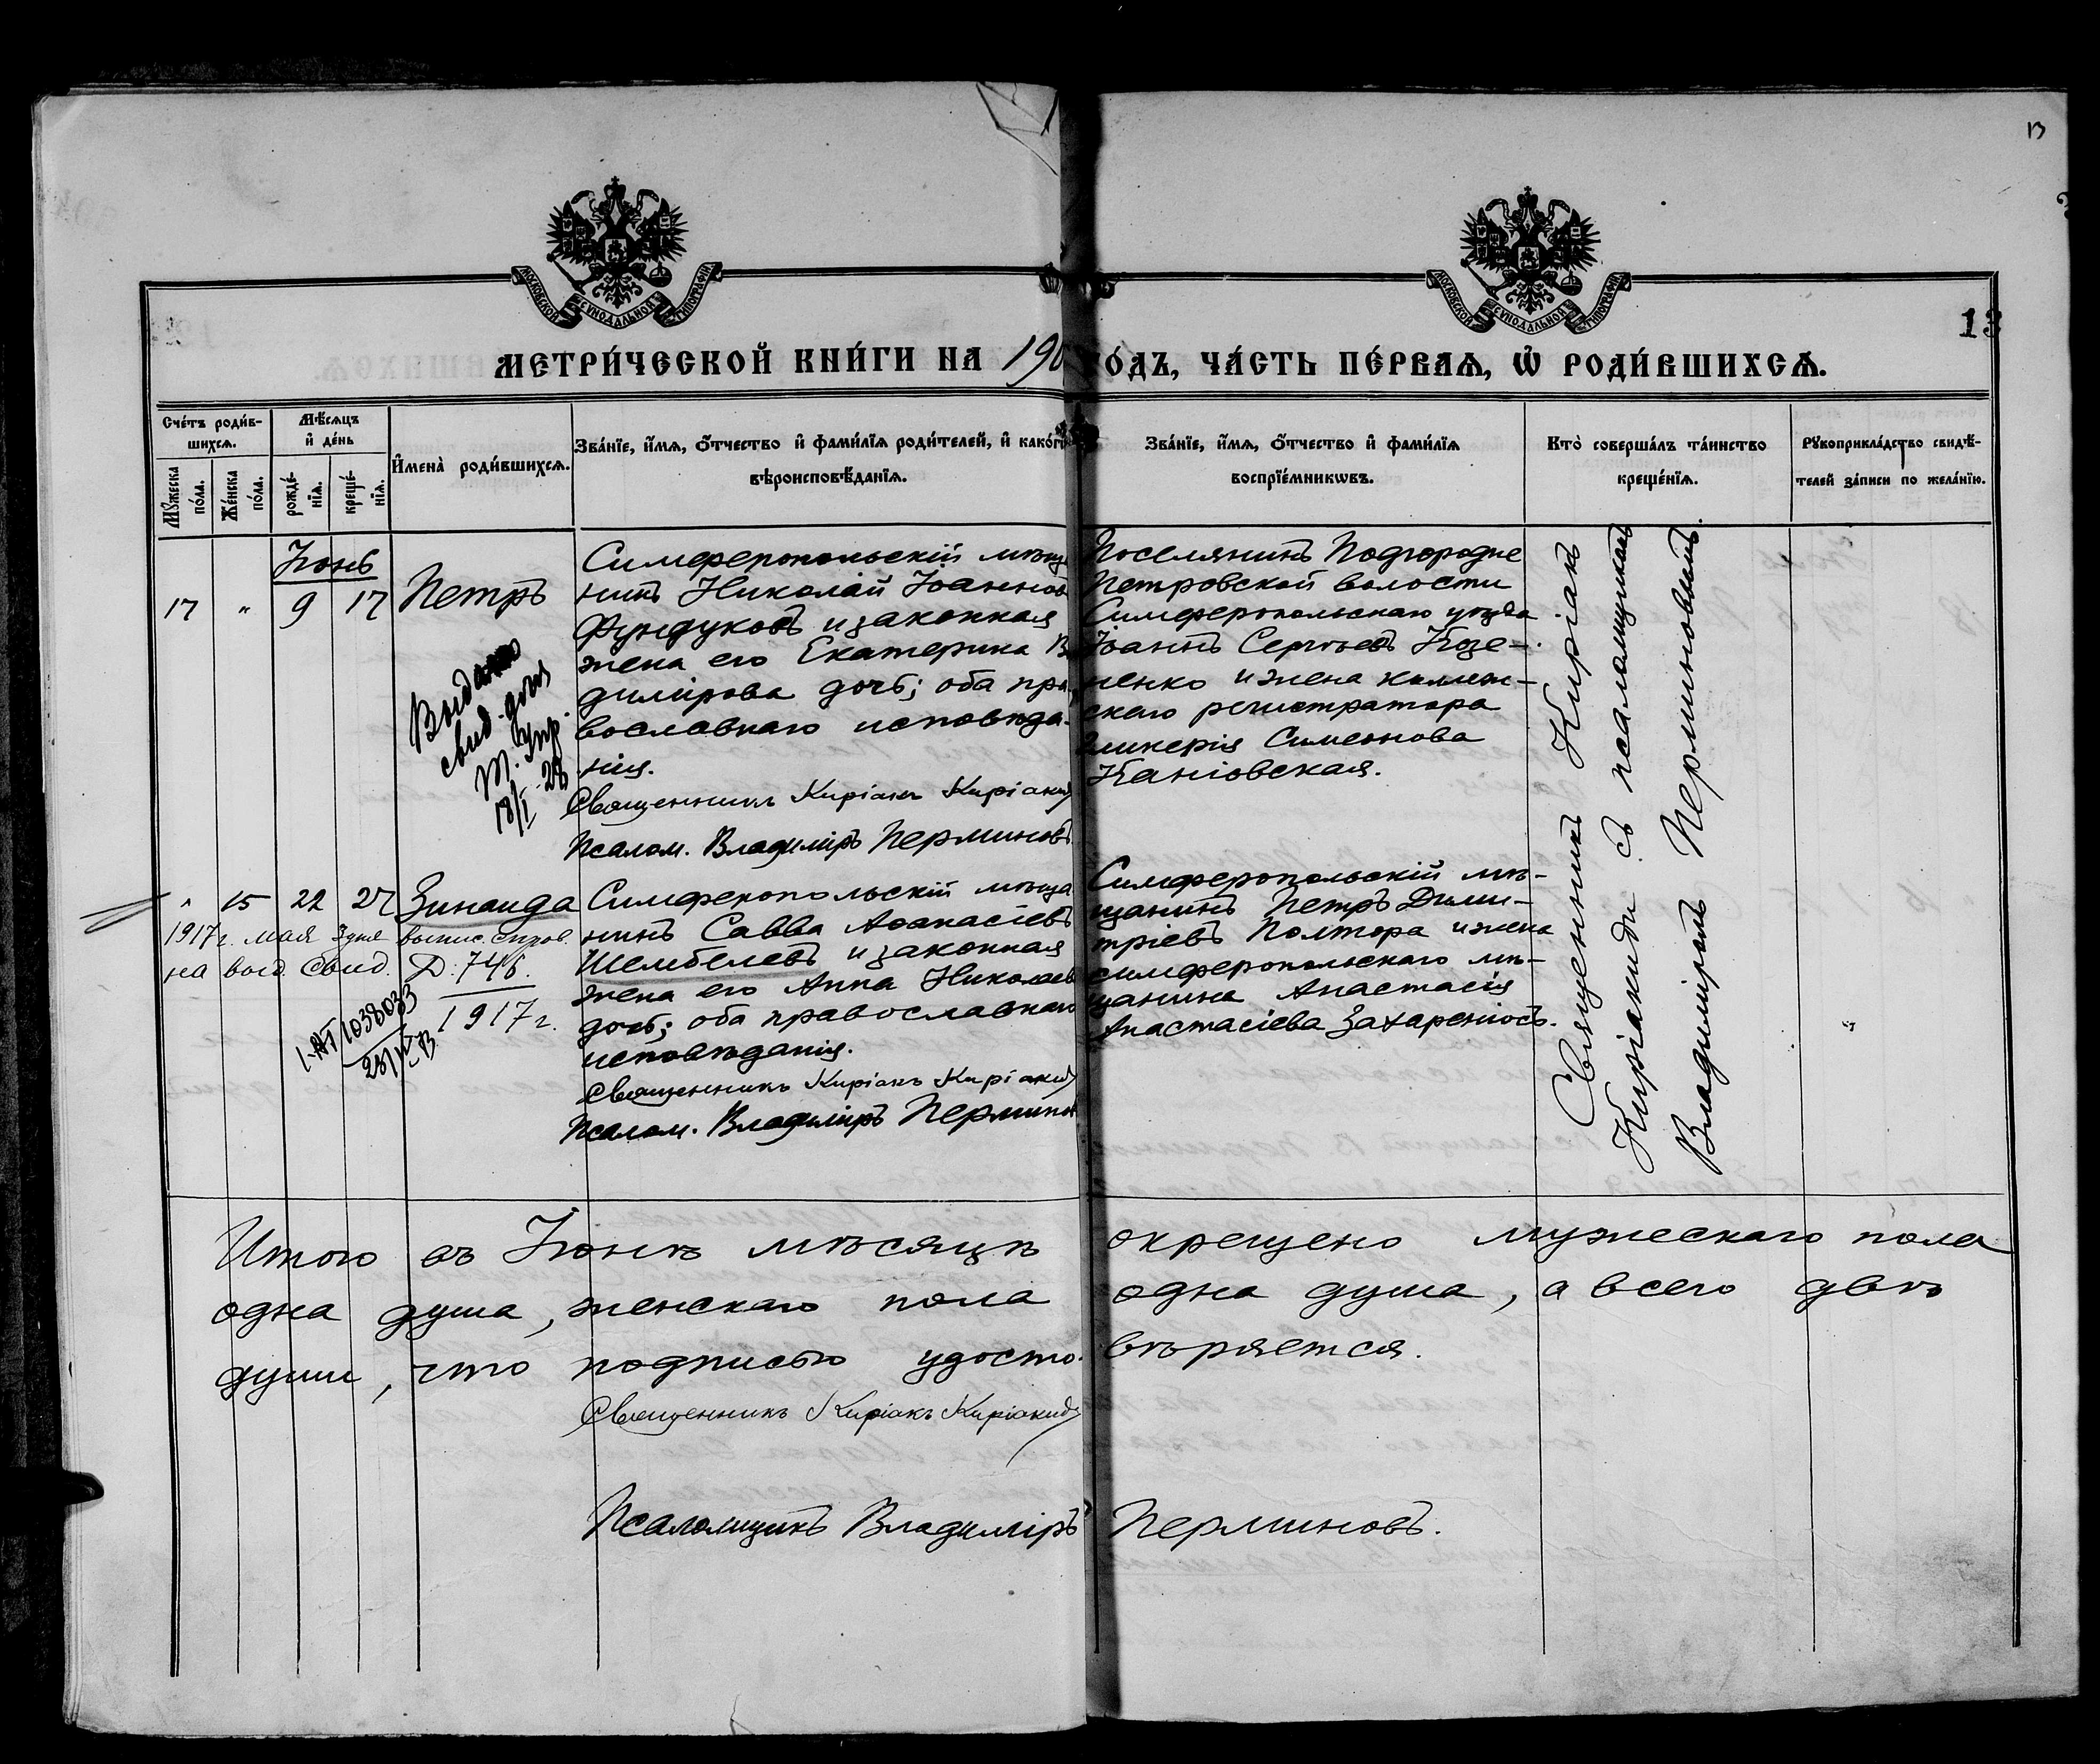 13
МОСКОВСКОЙ СУНОДАЛЬНОЙ ТИПОГРАФІИ
МОСКОВСКОЙ СУНОДАЛЬНОЙ ТИПОГРАФІИ
13
МЕТРИ́ЧЕСКОЙ КНИ́ГИ НА 190
О́ДЪ, ЧА́СТЬ ПЕ́РВАѦ, Ѡ РОДИ́ВШИХСѦ.
Сче́тъ роди́в-
шихсѧ.
Мѣ́сѧцъ
и де́нь
Мꙋ́жеска
по́ла.
Же́нска
по́ла.
рожде́-
нїѧ.
креще́-
нїѧ.
Имена̀ роди́вшихсѧ.
Зва́нїе, и́мѧ, ѻ́тчество и фами́лїѧ роди́телей, и како́гѡ
вѣроисповѣ́данїѧ.
Зва́нїе, и́мѧ, ѻ́тчество и фами́лїѧ
воспрїе́мникѡвъ.
Кто̀ соверша́лъ та́инство
креще́нїѧ.
Рꙋкоприкла́дство свидѣ́-
телей за́писи по жела́нїю.
Іюнь
17 " 9 17 Петръ
Симферопольскій мѣща
нинъ Николай Іоанновъ
Фундуковъ и законная
жена его Екатерина Вл
димірова дочь; оба пра
вославнаго исповѣда-
нія.
Священникъ Киріакъ Киріакиди
Псалом. Владиміръ Перминовъ
Выдано
свид. для
18/I 28
Поселянинъ Подгородне
Петровской волости
Симферопольскаго уѣзда
Іоаннъ Сергѣевъ Козе-
ненко и жена коллеж-
скаго регистратора
Гликерія Симеонова
Каніовская.
Священникъ Киріакъ
Киріакиди съ псаломщикомъ
Владиміромъ Перминовымъ.
" 15 22 27 Зинаида
1917 г. мая 3 дня выпис. справ.
на выд. свид. Д: 746.
1917 г.
1-АТ 1038033
Симферопольскій мѣща
нинъ Савва Аѳанасіевъ
Шембелевъ и законная
жена его Анна Николаев
дочь; оба православнаго
исповѣданія.
Священникъ Киріакъ Киріакиди
Псалом. Владиміръ Перминов
Симферопольскій мѣ-
щанинъ Петръ Дими-
тріевъ Полтора и жена
симферопольскаго мѣ-
щанина Анастасія
Анастасіева Захареніосъ.
Итого въ Іюнѣ мѣсяцѣ окрещено мужескаго пола
одна душа, женскаго пола одна душа, а всего двѣ
души, что подписью удосто- вѣряется.
Священникъ Киріакъ Киріакиди
Псаломщикъ Владиміръ Перминовъ.